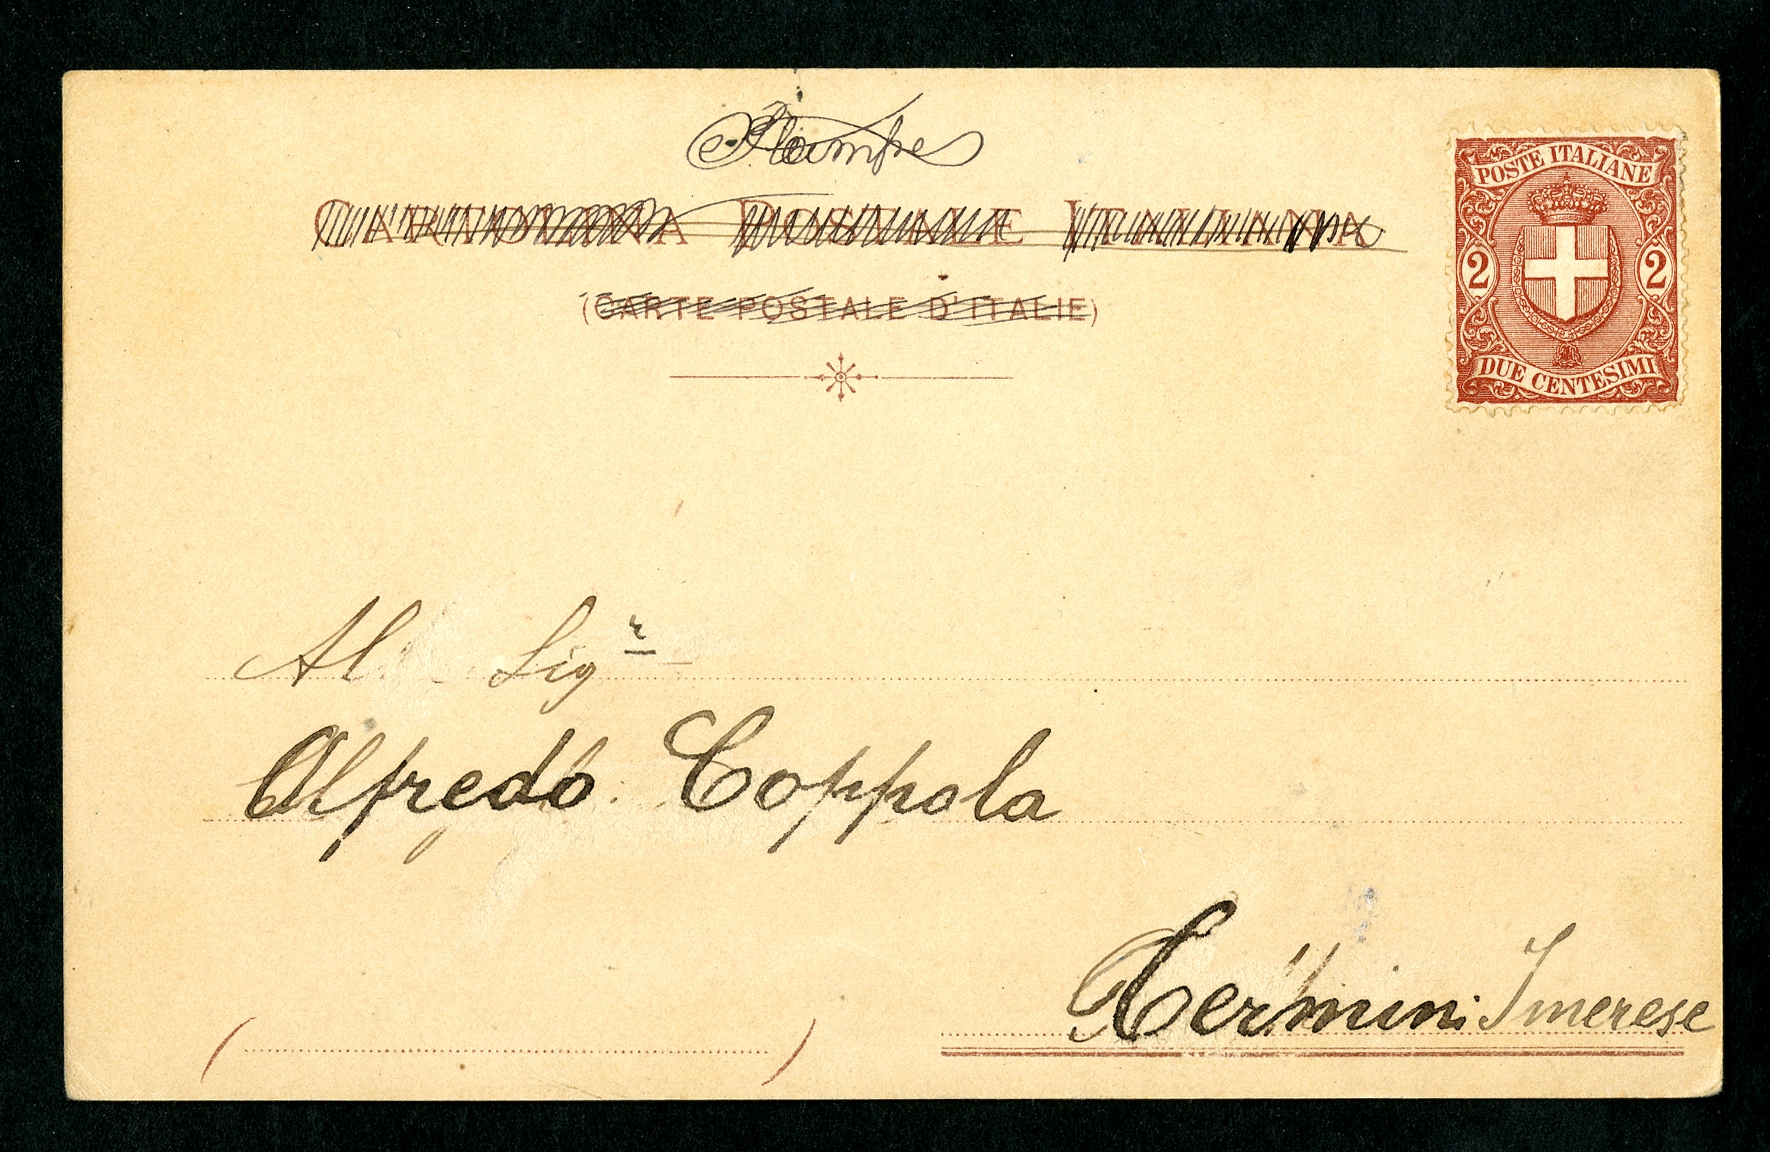 Stampe
CARTOLINA POSTALE ITALIANA
(CARTE POSTALE D'ITALIE)
POSTE ITALIANE
2 2
DUE CENTESIMI
Al Sigr
Alfredo Coppola
Termini Imerese